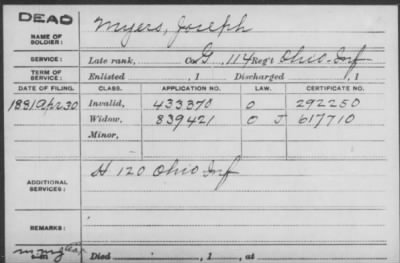 DEAD
NAME OF SOLDIER: Myers, Joseph
SERVICE: Late rank, Co G, 114 Reg't Ohio Inf
TERM OF SERVICE: Enlisted , 1 Discharged , 1
DATE OF FILING. CLASS. APPLICATION NO. LAW. CERTIFICATE NO.
1881 Apr 30 Invalid, 433370 O 292250
Widow, 839421 O J 617710
Minor,
ADDITIONAL SERVICES: H 120 Ohio Inf
REMARKS:
Died , 1 , at